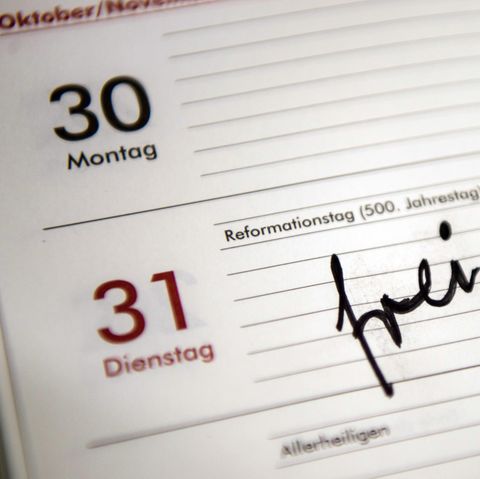 Oktober/Novem
30
Montag
Reformationstag (500. Jahrestag)
31
frei
Dienstag
Allerheiligen